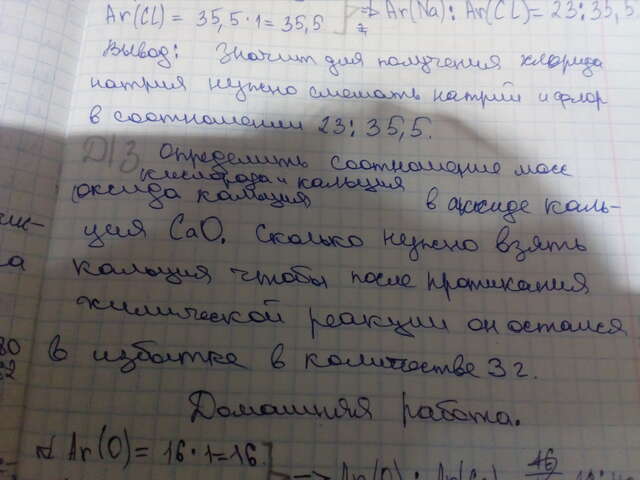 Ar(Cl) = 35,5·1=35,5 ] ⇒ Ar(Na): Ar(Cl)= 23:35,5
Вывод: Значит для получения хлорида
натрия нужно смешать натрий и флор
в соотношении 23:35,5.
Д/З Определить соотношение масс
кислорода и кальция
(оксида кальция) в оксиде каль-
ция CaO. Сколько нужно взять
кальция чтобы после протикания
химической реакции он остался
в избытке в количестве 3г.
Домашняя работа.
Ar(O)= 16·1=16.